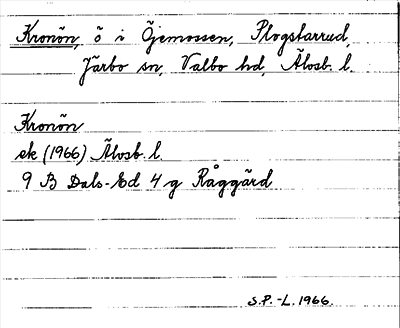 Kronön, ö i Öjemossen, Plogstarrud,
Järbo sn, Valbo hd, Älvsb. l.
Kronön
ek (1966) Älvsb. l.
9 B Dals-Ed 4 g Råggärd
S.P. -L. 1966.